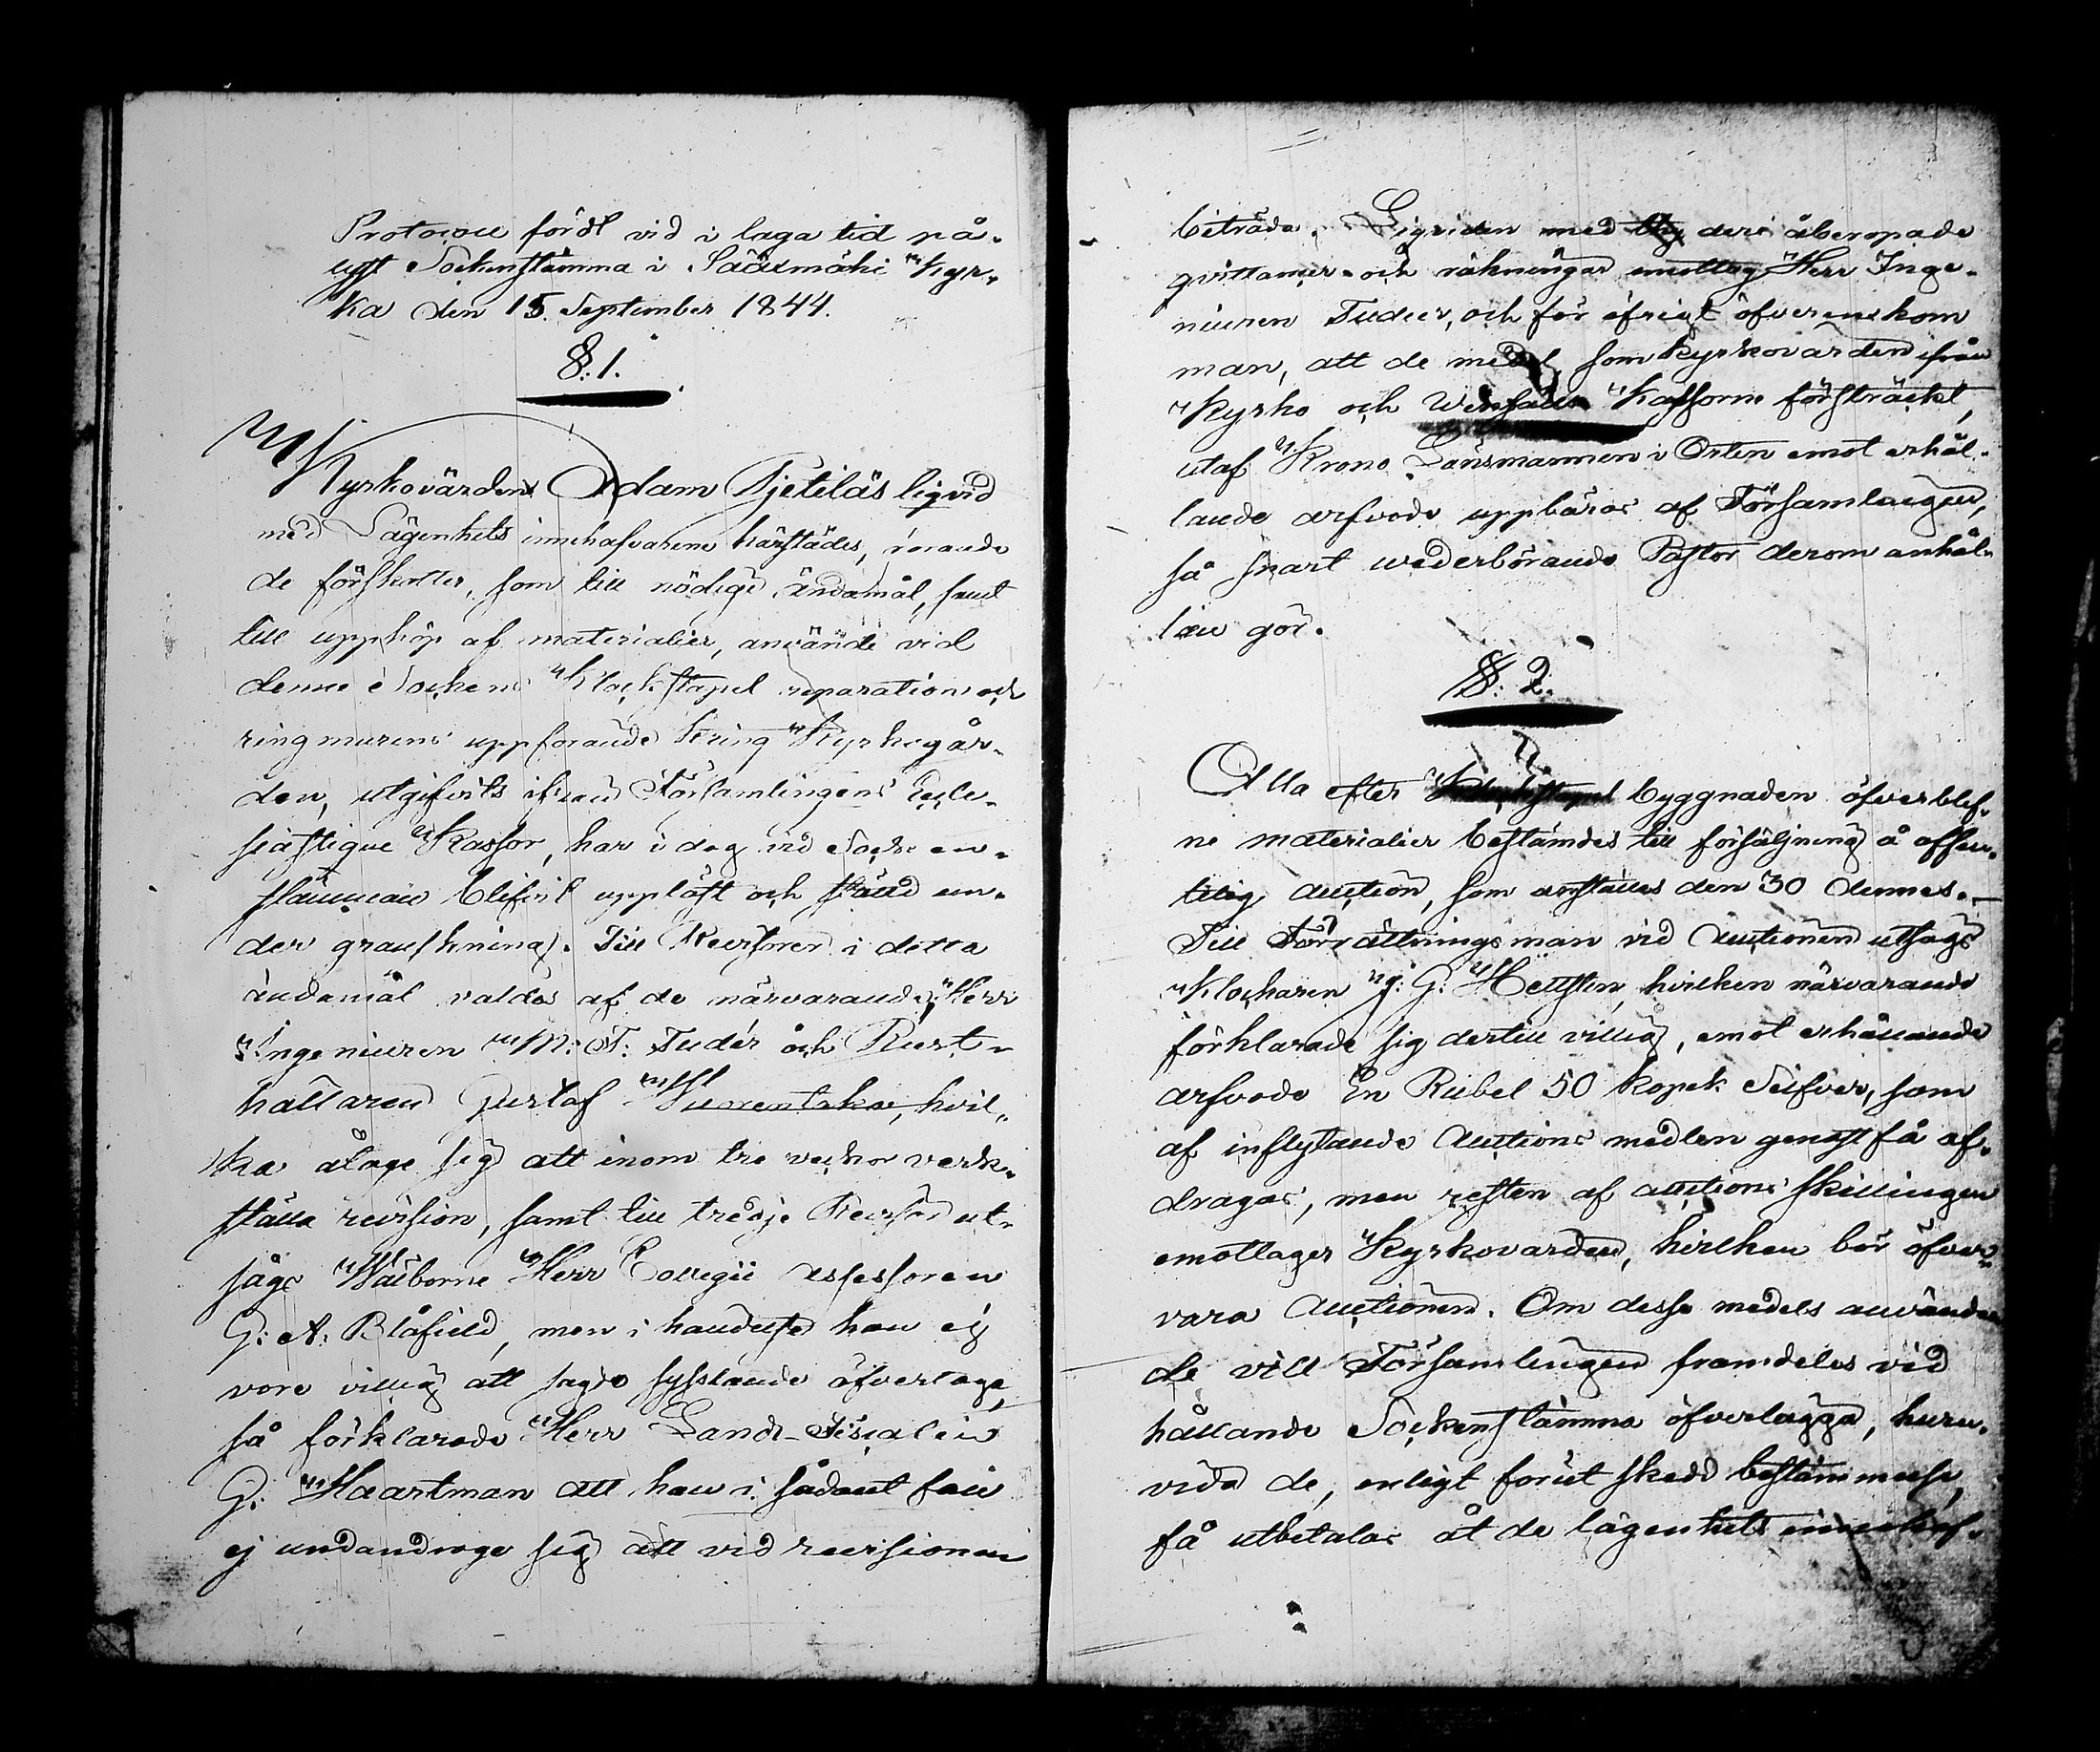 Protocoll fördt vid i laga tid på-
lyst Sockenstämma i Sääxmäki Kyr-
ka den 15 September 1844.
§:1.
Kyrkovärden Adam Pjetiläs liqvid
med Lägenhets innehafvarene härstädes, rörande
de förskotter, som till nödige ändamål, samt
till upphöp af materialier, använde vid
denne Sockens Klockstapel reparation och
ringmurens uppförande kring Kyrkogår-
den, utgifvits ifrån Församlingens Eccle-
siastique Kassor, har i dag vid Socken-
stämman blifvit uppläst och ställd un-
der granskning. Till Revisorer i detta
ändamål valdes af de närvarande, Herr
Ingenieuren M: T: Tudér och Rust-
hållaren Gustaf Vuorentaka, hvil-
ka åtoge sig att inom tre veckor verk-
ställa revision, samt till tredje Revisor ut-
sågs Wälborne Herr Collegii Assessoren
G: A: Blåfield, men i händelse han ej
vore villig att sagde sysslande öfvertaga,
så förklarade Herr Lands-Fiscalen
G: Haartman att han i sådant fall
ej undandroge sig att vid revisionen
biträda. Liqviden med deri åberopade
qvittancer och räkningar emottog Herr Inge-
nieuren Tudeer, och för öfrigt öfverenskom
man, att de medel som Kyrkovärden ifrån
Kyrko och Kassorne försträckt,
utaf Krono Länsmannen i Orten emot erhål-
lande arfvode uppbäras af Församlingen,
så snart wederbörande Pastor derom anhål-
lan gör.
§: 2.
Alla efter Klockstapel byggnaden öfverblef-
ne materialier bestämdes till försäljning å offen-
telig auction, som anställes den 30 dennes.
Till Förrättningsman vid Auctionen utsågs
Klockaren J: G: Hellsten, hvilken närvarande
förklarade sig dertill villig, emot erhållande
arfvode En Rubel 50 Kopek Silfver, som
af inflytande Auctions medlen genast få af-
dragas, men resten af auctions skillingen
emottager Kyrkovärden, hvilken bör öfver-
vara Auctionen. Om desse medels använden-
de vill Församlingen framdeles vid
hållande Sockenstämma öfverlägga, huru-
vida de, enligt förut skedd bestämmelse,
få utbetalas åt de lägenhets innehaf-